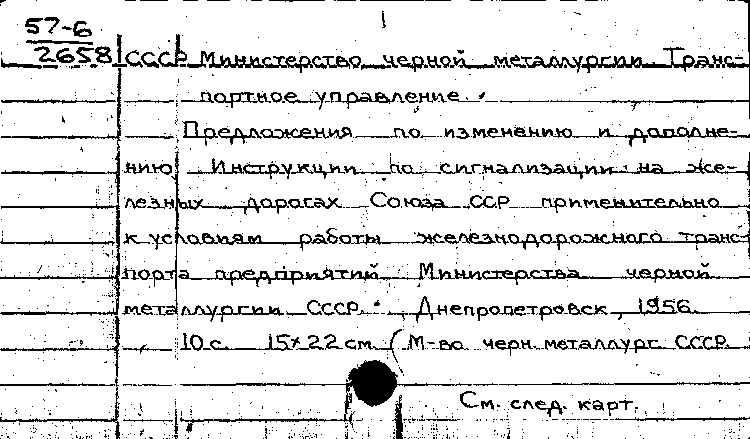 57-6
2658
СССР Министерство черной металлургии. Транс-
портное управление.
Предложения по изменению и дополне-
нию Инструкции по сигнализации на же-
лезных дорогах Союза ССР применительно
к условиям работы железнодорожного транс-
порта предприятий Министерства черной
металлургии СССР. Днепропетровск, 1956.
10 с. 15x22 см. (М-во черн. металлург. СССР
См. след. карт.